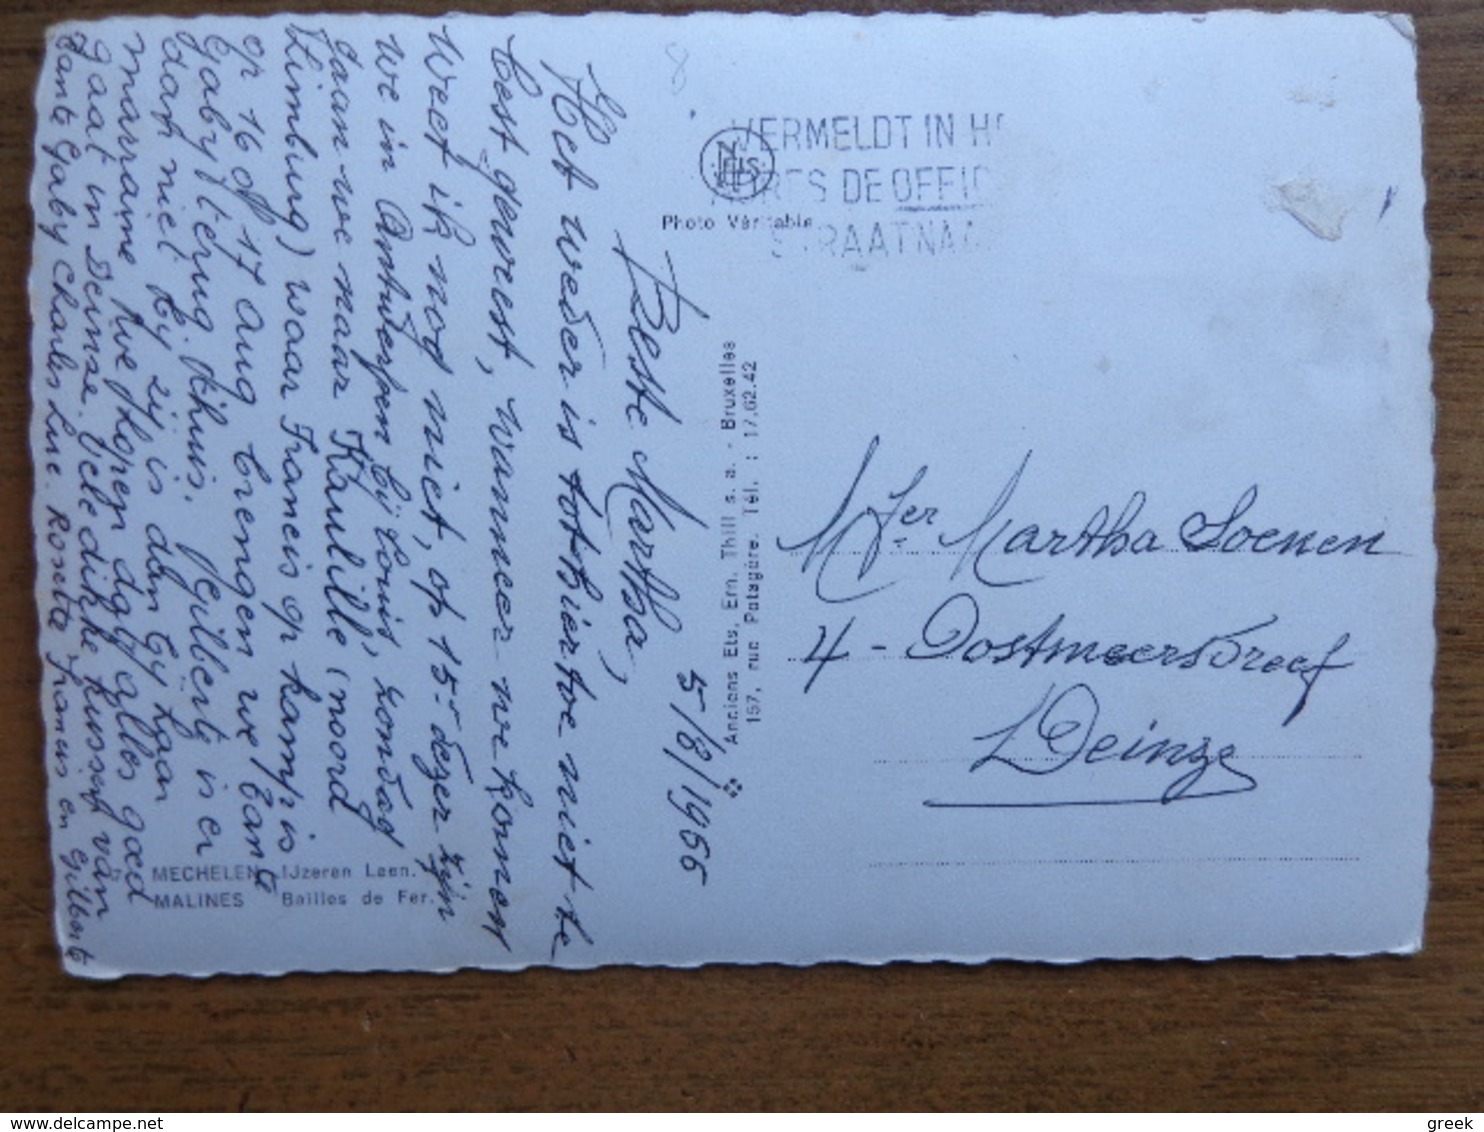 5/8/1955
Beste Martha,
Het weder is tot hiertoe niet te
best geweest, wanneer we komen
weet ik nog niet, op 15- dezer zijn
we in Antwerpen bij Louis, zondag
gaan we naar Kaulille (noord
Limburg) waar Francis op kamp is
op 16 of 17 aug brengen we tante
Gaby terug thuis. Gilberte is er
doch niet bij zij is dan bij haar
marraine. We hopen dat alles goed
gaat in Deinse. Vele dikke kussen van
tante Gaby Charles Luc. Rosette Francis en Gilberte
MECHELEN IJzeren Leen.
MALINES Bailles de Fer.
NELS
Photo Véritable
VERMELDT IN
DE
STRAATNAA
Anciens Ets. Ern. Thill s. a. - Bruxelles
157, rue Potagère. Tél. : 17.62.42
Mejer Martha Soenen
4 - Oostmeersdreef
Deinze
8
greek